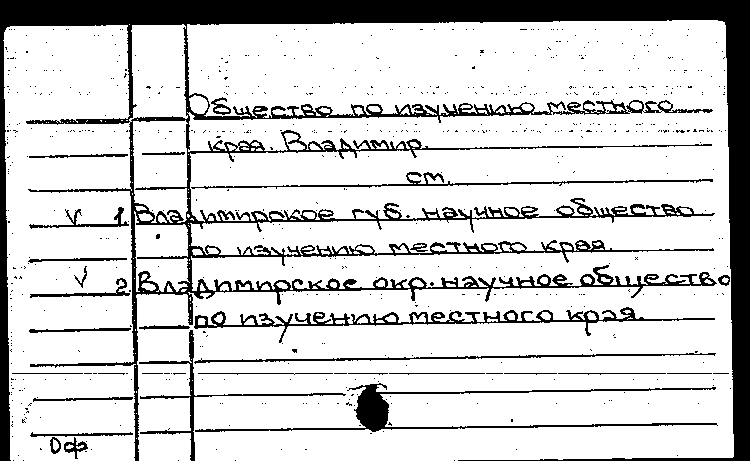 Общество по изучению местного
края. Владимир.
ст.
V 1. Владимирское губ. научное общество
по изучению местного края.
V 2. Владимирское окр. научное общество
по изучению местного края.
Оф